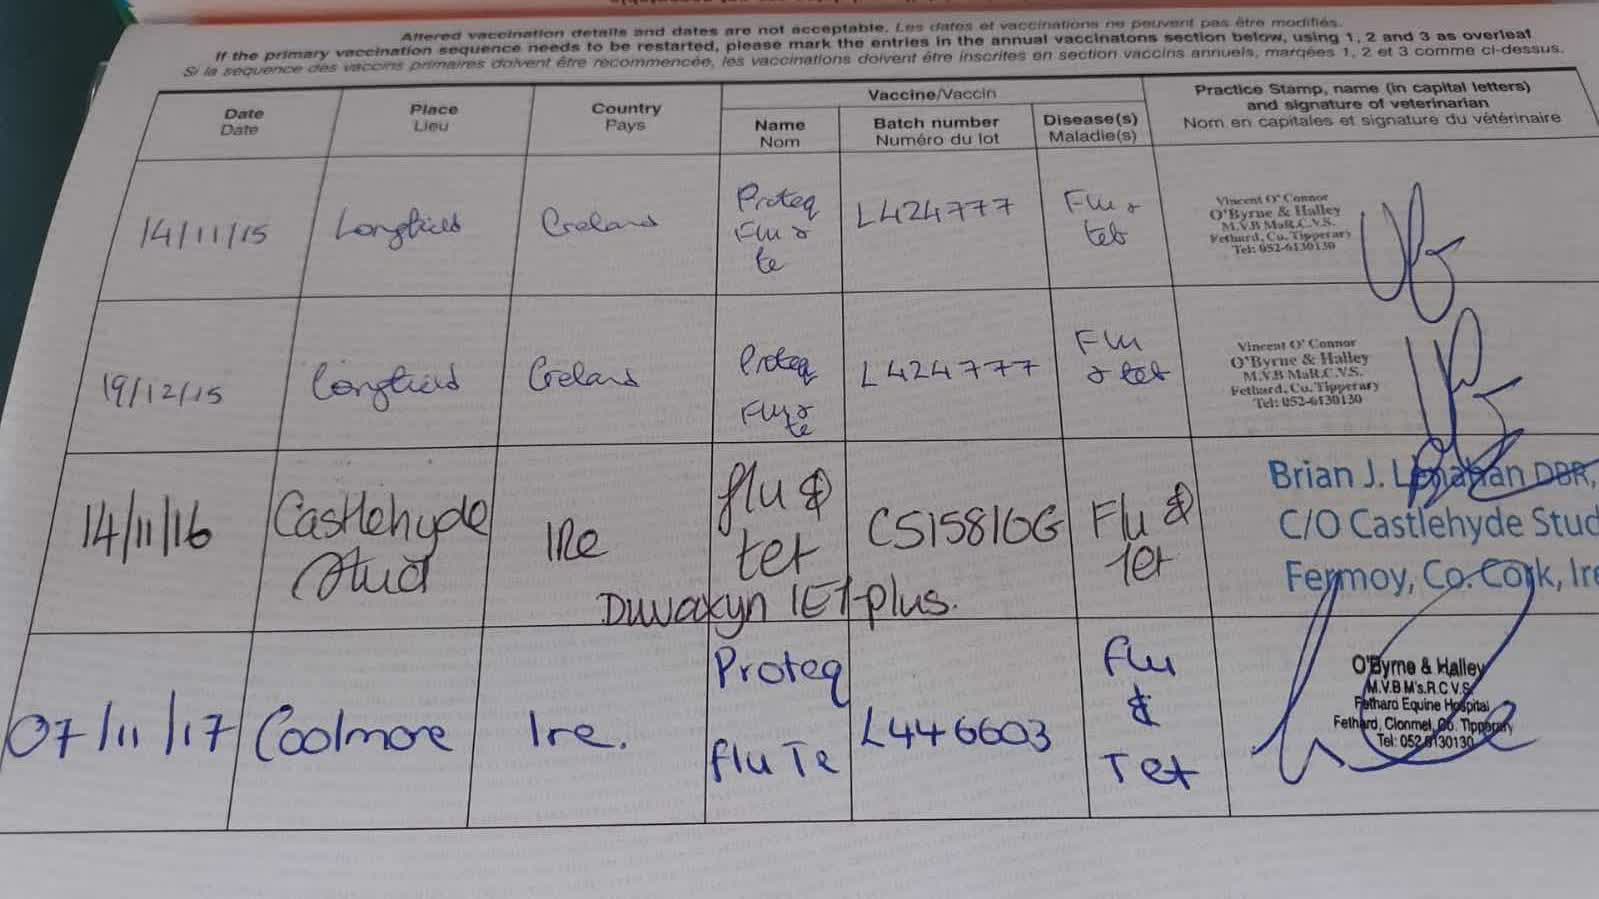 Altered vaccination details and dates are not acceptable. Les dates et vaccinations ne peuvent pas être modifiés.
If the primary vaccination sequence needs to be restarted, please mark the entries in the annual vaccinatons section below, using 1, 2 and 3 as overleaf
Si la séquence des vaccins primaires doivent être recommencée, les vaccinations doivent être inscrites en section vaccins annuels, marqées 1, 2 et 3 comme ci-dessus.
Date
Date
Place
Lieu
Country
Pays
Vaccine/Vaccin
Name
Nom
Batch number
Numéro du lot
Disease(s)
Maladie(s)
Practice Stamp, name (in capital letters)
and signature of veterinarian
Nom en capitales et signature du vétérinaire
14/11/15
Longfield
Ireland
Proteq
Flu &
te
L424777
Flu &
tet
Vincent O' Connor
O'Byrne & Halley
M.V.B MaR.C.V.S.
Fethard, Co. Tipperary
Tel: 052-6130130
19/12/15
Longfield
Ireland
Proteq
Flu &
te
L424777
Flu
& tet
Vincent O' Connor
O'Byrne & Halley
M.V.B MaR.C.V.S.
Fethard, Co. Tipperary
Tel: 052-6130130
14/11/16
Castlehyde
Stud
IRe
flu &
tet
Duvaxyn IET-plus.
C515810G
Flu &
Tet
Brian J. DBR,
C/O Castlehyde Stud
Fermoy, Co. Cork, Ire
07/11/17
Coolmore
Ire.
Proteq
flu Te
L446603
flu
&
Tet
O'Byrne & Halley
M.V.B M's.R.C.V.S
Fethard Equine Hospital
Fethard, Clonmel, Co. Tipperary
Tel: 052-6130130